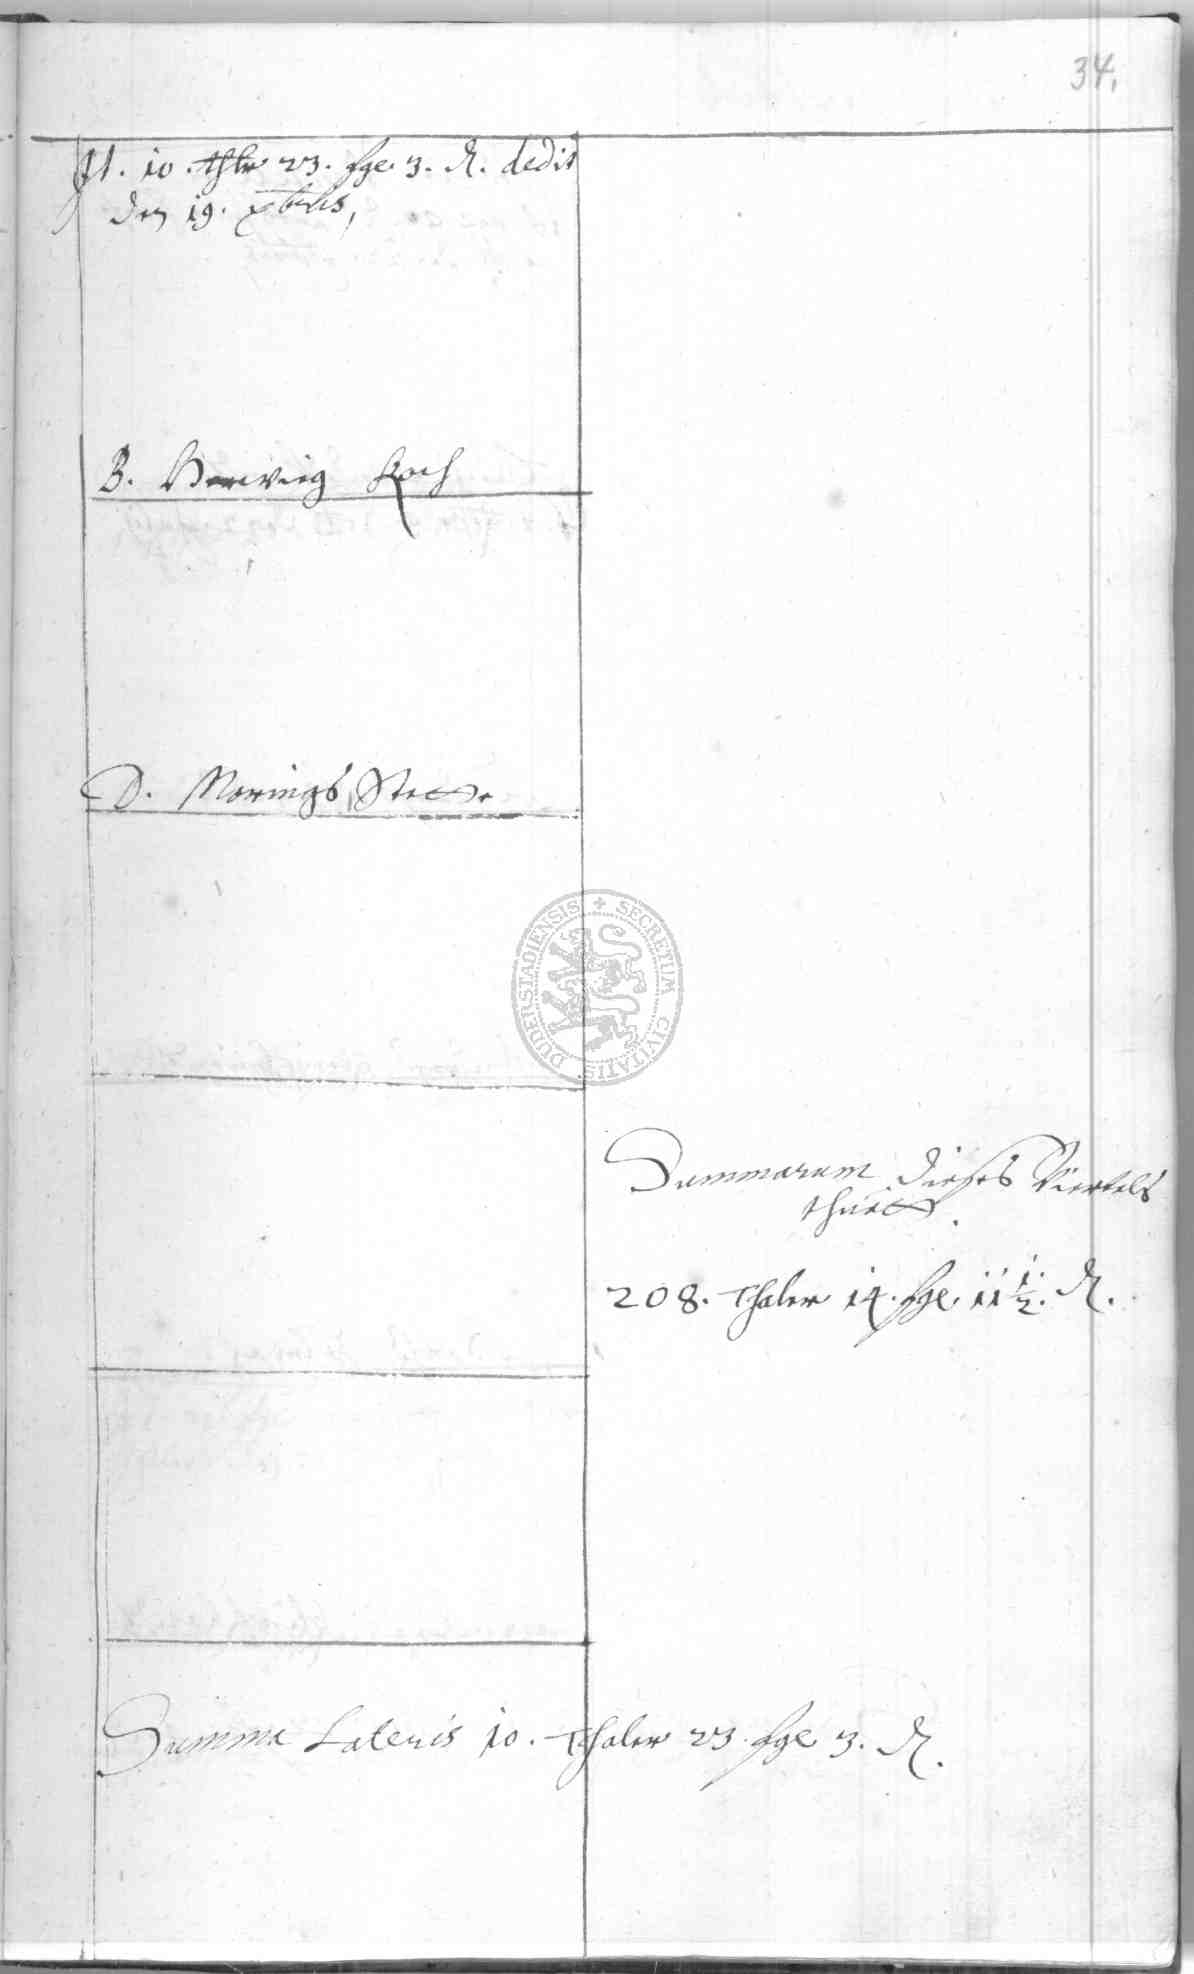 34.
It. 10. thlr 23. sge 3. ₰. dedit
den 19. xbris,
B. Herwieg Koch
D. Morings Stette
SECRETUM CIVITATIS DUDERSTADIENSIS
Summarum dieses Viertels
thuett.
208. Thaler 14. sge. 11 1/2. ₰.
Summa Lateris 10. Thaler 23. sge 3. ₰.